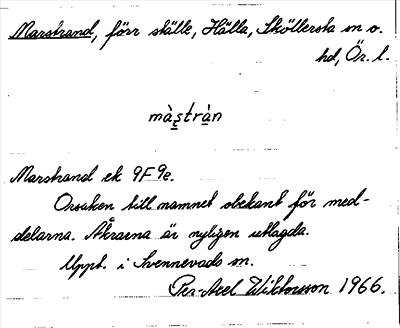 Marstrand, förr ställe, Hälla, Sköllersta sn o.
hd, Ör. l.
màs̨tràn
Marstrand ek 9F9e.
Orsaken till namnet obekant för med-
delarna. Åkrarna är nyligen utlagda.
Uppt. i Svennevads sn.
Per-Axel Wiktorsson 1966.